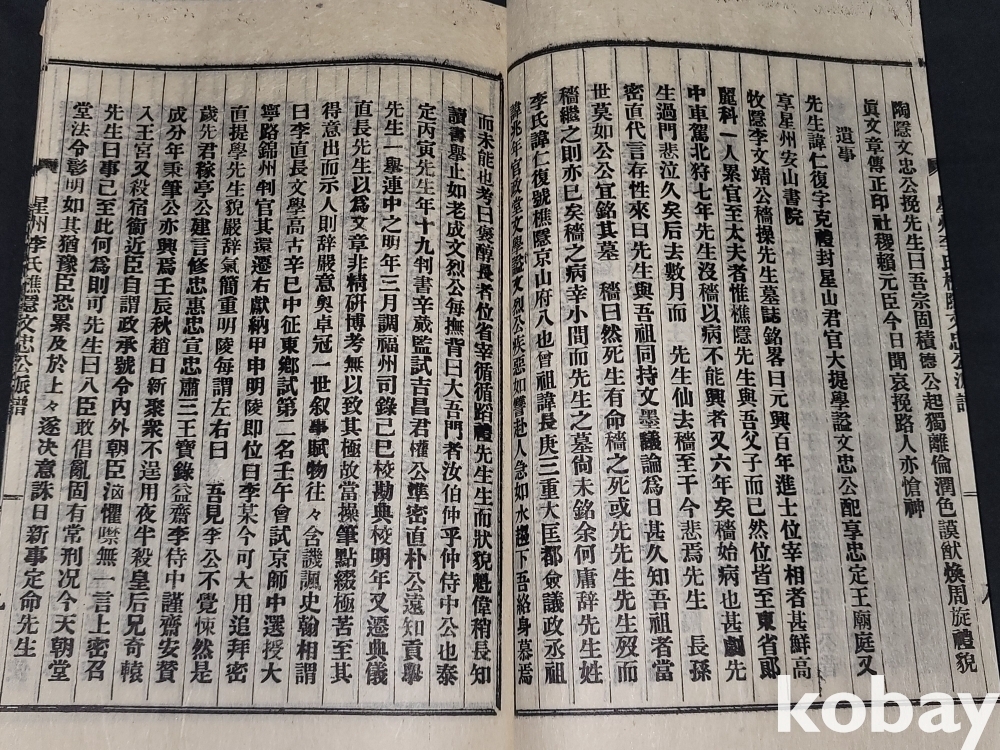 陶隱文忠公挽先生曰吾宗固積德公起獨離倫潤色謨猷煥周旋禮貌
眞文章傳正印社稷賴元臣今日聞哀挽路人亦愴神
遺事
先生諱仁復字克禮封星山君官大提學謚文忠公配享忠定王廟庭又
享星州安山書院
牧隱李文靖公穡撰先生墓誌銘畧曰元興百年進士位宰相者甚鮮高
麗科一人累官至太夫者惟樵隱先生與吾父子而已然位皆至東省郞
中車駕北狩七年先生沒穡以病不能興者又六年矣穡始病也甚劇先
生過門悲泣久矣后去數月而 先生仙去穡至千今悲焉先生 長孫
密直代言存性來曰先生與吾祖同持文墨議論爲日甚久知吾祖者當
世莫如公公宜銘其墓 穡曰然死生有命穡之死或先先生先生歿而
穡繼之則亦巳矣穡之病幸小間而先生之墓尙未銘余何庸辞先生姓
李氏諱仁復號樵隱京山府八也曾祖諱長庚三重大匡都僉議政丞祖
諱兆年官政堂文學謚文烈公疾惡如讐赴人急如水 下吾絡身慕焉
而未能也考曰褒醇長者位省宰循循蹈禮先生生而狀貌魁偉稍長知
讀書擧止如老成文烈公每撫背曰大吾門者汝伯仲乎仲侍中公也泰
定丙寅先生年十九判書辛蕆監試吉昌君權公準密直朴公遠知貢擧
先生一擧連中之明年三月調福州司錄己巳校勘典校明年又遷典儀
直長先生以爲文章非精研博考無以致其極故當操筆點綴極苦至其
得意出而示人則辞嚴意奥卓冠一世叙事賦物往々含譏諷史翰相謂
曰李直長文學高古辛巳中征東鄕試第二名壬午會試京師中選授大
寧路錦州判官其還遷右獻納甲申明陵即位曰李某今可大用追拜密
直提學先生貌嚴辞氣簡重明陵每謂左右曰 吾見李公不覺悚然是
歲先君稼亭公建言修忠惠忠宣忠肅三王實錄益齋李侍中謹齋安贊
成分年秉筆公亦興焉壬辰秋趙日新聚衆不逞用夜半殺皇后兄奇轅
入王宮又殺宿衞近臣自謂政承號令內外朝臣洶懼噤無一言上密召
先生曰事己至此何爲則可先生曰八臣敢倡亂固有常刑况今天朝堂
堂法令彰明如其猶豫臣恐累及於上々遂决意誅日新事定命先生
星州李氏樵隱文忠公派譜
星州李氏樵隱文忠公派譜
kobay